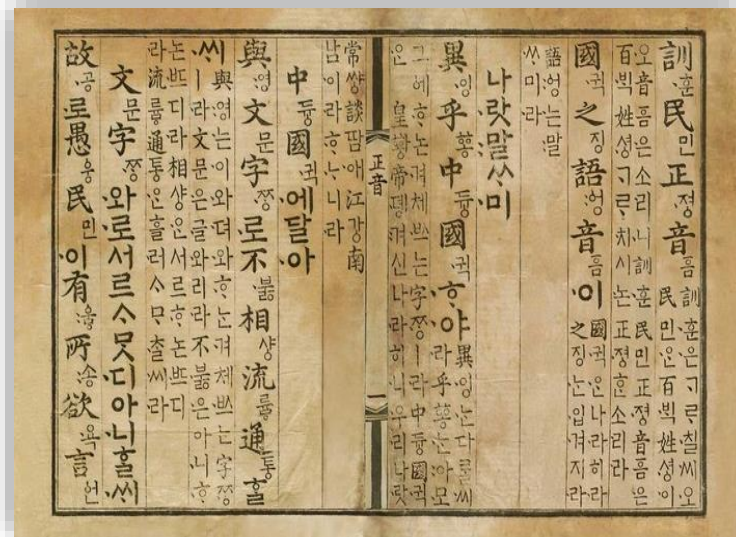 訓훈民민正졍音ᅙᅳᆷ 訓훈은ᄀᆞᄅᆞ칠씨오
民민ᄋᆞᆫ百ᄇᆡᆨ姓셩이
오音ᅙᅳᆷ은소리니訓훈民민正졍音ᅙᅳᆷ은
百ᄇᆡᆨ姓셩ᄀᆞᄅᆞ치시논正졍ᄒᆞᆫ소리라
國귁之징語ᅌᅥᆼ音ᅙᅳᆷ이 國귁ᄋᆞᆫ나라히라
之징ᄂᆞᆫ입겨지라
語ᅌᅥᆼ는말
ᄊᆞ미라
나랏말ᄊᆞ미
異잉乎ᅘᅩᆼ中듕國귁ᄒᆞ야 異잉ᄂᆞᆫ다ᄅᆞᆯ씨
라乎ᅘᅩᆼᄂᆞᆫ아모
그에ᄒᆞ논겨체ᄡᅳ는字ᄍᆞᆼㅣ라中듕國귁
ᄋᆞᆫ皇ᅘᅪᆼ帝뎽겨신나라히니우리나랏
正音
一
常썅談땀애江강南
남이라ᄒᆞᄂᆞ니라
中듕國귁에달아
與영文문字ᄍᆞᆼ로不부ᇙ相샹流류ᇢ通토ᇰᄒᆞᆯ
ᄊᆡ 與영는이와뎌와ᄒᆞ는겨체ᄡᅳ는字ᄍᆞᆼ
ㅣ라文문은글와리라不부ᇙ은아니ᄒᆞ
논ᄠᅳ디라相샹ᄋᆞᆫ서르ᄒᆞ논ᄠᅳ디
라流류ᇢ通토ᇰᄋᆞᆫ흘러ᄉᆞᄆᆞᄎᆞᆯ씨라
文문字ᄍᆞᆼ와로서르ᄉᆞᄆᆞᆺ디아니ᄒᆞᆯᄊᆡ
故공로愚웅民민이有우ᇢ所송欲욕言언